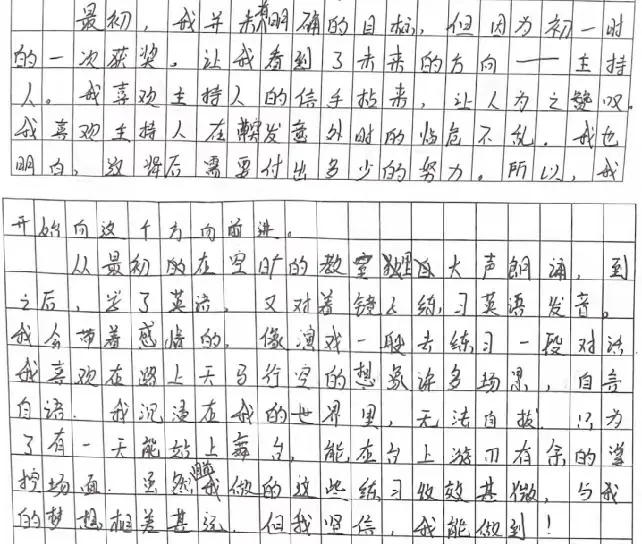 最初，我并未有明确的目标，但因为初一时
的一次获奖。让我看到了未来的方向——主持
人。我喜欢主持人的信手拈来，让人为之赞叹。
我喜欢主持人在突发意外时的临危不乱。我也
明白，这背后需要付出多少的努力。所以，我
开始向这个方向前进。
从最初的在空旷的教室里独自大声朗诵，到
之后，学了英语，又对着镜子练习英语发音。
我会带着感情的，像演戏一般去练习一段对话
我喜欢在路上天马行空的想象许多场景，自言
自语。我沉浸在我的世界里，无法自拔。只为
了有一天能站上舞台，能在台上游刃有余的掌
控场面。虽然我做的这些练习收效甚微，与我
的梦想相差甚远。但我坚信，我能做到！